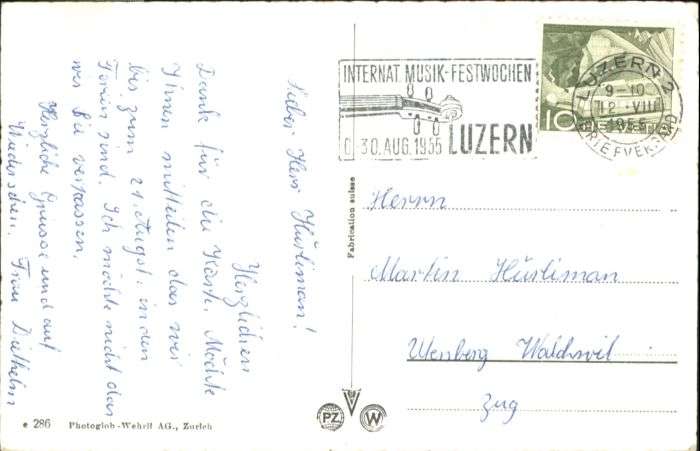 Lieber Herr Hürliman!
Herzlichen
Dank für die Karte. Möchte
Ihnen mitteilen das wir
bis zum 21. August. in den
Ferien sind. Ich möchte nicht das
wes Sie verpassen.
Herzliche Grüsse und auf
Wiedersehen. Frau Diethelm
INTERNAT. MUSIK-FESTWOCHEN
30. AUG. 1955 LUZERN
LUZERN 2
9-10
12. VIII
1955
BRIEFVERSAND
10
Fabrication suisse
Herrn
Martin Hürliman
Utenberg Walchwil
Zug
e 286 Photoglob-Wehrli AG., Zurich
PZ
W